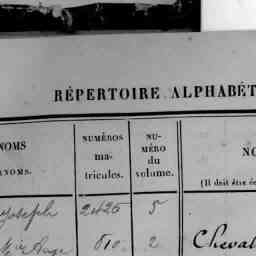 RÉPERTOIRE ALPHABÉT
NOMS
NUMÉROS
ma-
tricules.
NU-
MÉRO
du
volume.
NO
(Il doit être é
NOMS.
Joseph 2426 5
Mie Ange 610. 2 Cheval